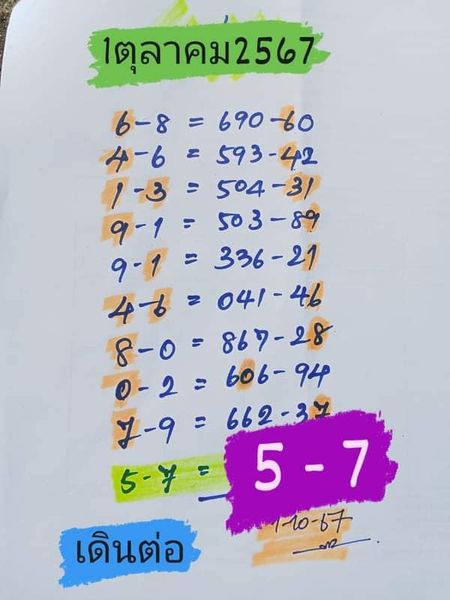 1ตุลาคม2567
6-8 = 690-60
4-6 = 593-42
1-3 = 504-31
9-1 = 503-89
9-1 = 336-21
4-6 = 041-46
8-0 = 867-28
0-2 = 606-94
7-9 = 662-37
5-7 = 5 - 7
1-10-67
เดินต่อ